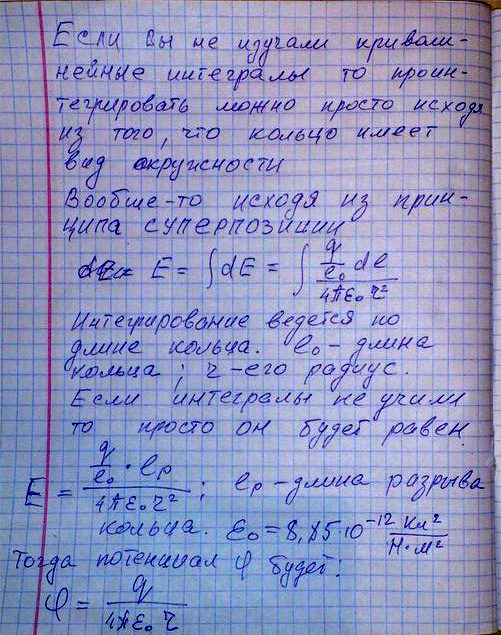 Если вы не изучали криволи-
нейные интегралы то проин-
тегрировать можно просто исходя
из того, что кольцо имеет
вид окружности
Вообще-то исходя из прин-
ципа СУПЕРПОЗИЦИИ
E = ∫dE = ∫ (q/e₀ de)/(4πε₀r²)
Интегрирование ведется по
длине кольца. e₀ - длина
кольца ; r - его радиус.
Если интегралы не учили
то просто он будет равен
E = (q/e₀ · eₚ)/(4πε₀r²) ; eₚ - длина разрыва
кольца. ε₀ = 8,85·10⁻¹² Кл²/Н·м²
Тогда потенциал φ будет:
φ = q/(4πε₀r)